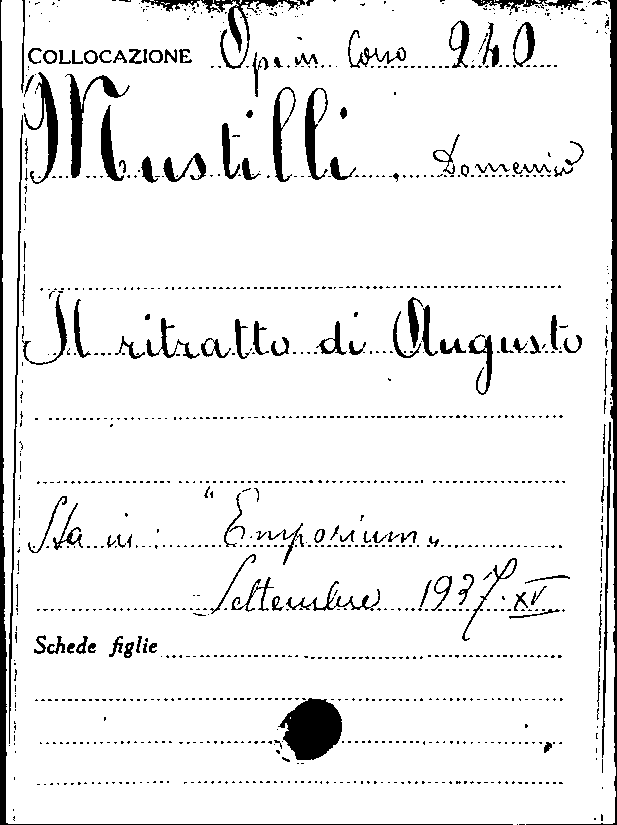 COLLOCAZIONE Op. in Corso 240
Mustilli. Domenico
Il ritratto di Augusto
Sta in: "Emporium„
Settembre 1937. XV
Schede figlie